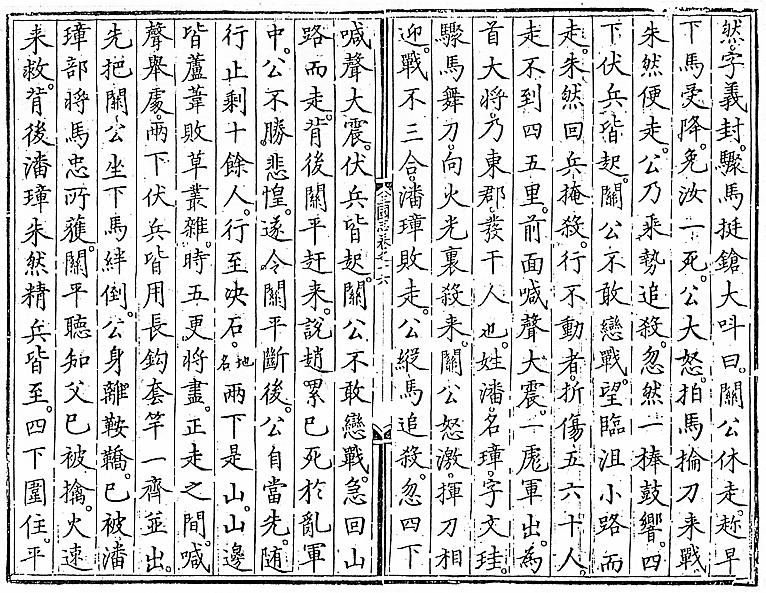 然。字義封。驟馬挺鎗大呌曰。關公休走。趂早
下馬受降。免汝一死。公大怒。拍馬掄刀来戰
朱然便走。公乃乘勢追殺。忽然一捧鼓響。四
下伏兵皆起。關公不敢戀戰。望臨沮小路而
走。朱然回兵掩殺。行不動者折傷五六十人。
走不到四五里。前面喊聲大震。一彪軍出。為
首大將。乃東郡發干人也。姓潘。名璋。字文珪
驟馬舞刀。向火光裏殺来。關公怒激。揮刀相
迎。戰不三合。潘璋敗走。公縱馬追殺。忽四下
三國志卷之十六
喊聲大震。伏兵皆起。關公不敢戀戰。急回山
路而走。背後關平赶来。說趙累已死於亂軍
中。公不勝悲惶。遂令關平斷後。公自當先。随
行止剩十餘人。行至决石。地名兩下是山。山邊
皆蘆葦敗草叢雜。時五更將盡。正走之間。喊
聲舉處。兩下伏兵皆用長鈎套竿一齊並出。
先把關公坐下馬絆倒。公身離鞍鞽。已被潘
璋部將馬忠所獲。關平聽知父已被擒。火速
来救。背後潘璋朱然精兵皆至。四下圍住。平